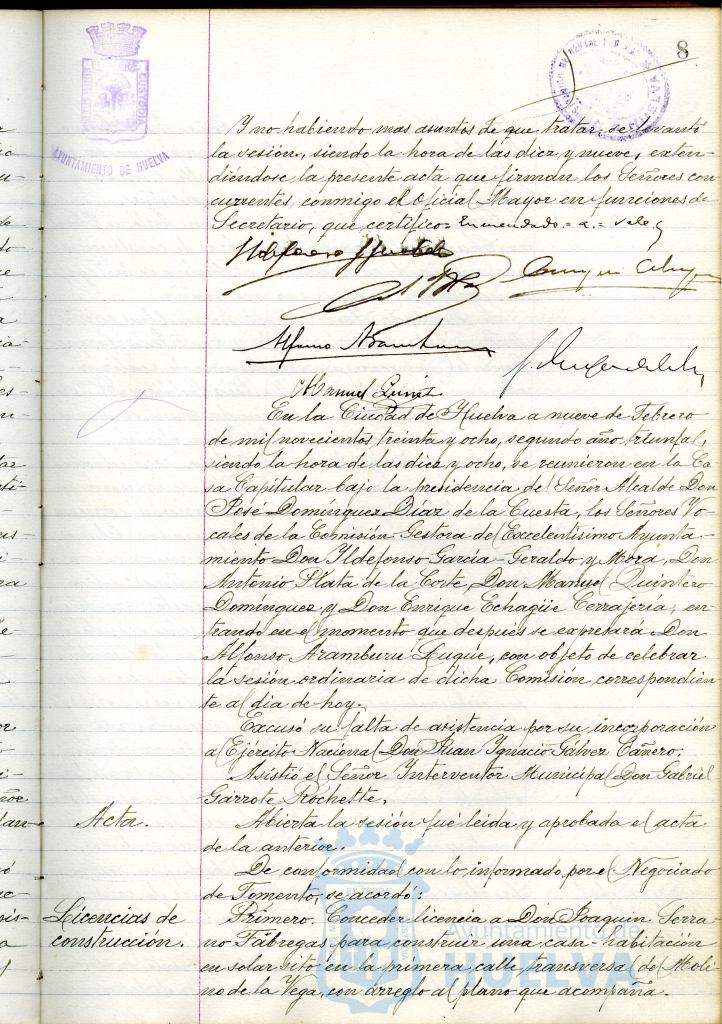 8
AYUNTAMIENTO DE HUELVA
Y no habiendo mas asuntos de que tratar, se levantó
la sesión, siendo la hora de las diez y nueve, exten-
diéndose la presente acta que firman los Señores con-
currentes, conmigo el Oficial Mayor en funciones de
Secretario, que certifico = Enmendado = a = vale
Alfonso Aramburu
Manuel
En la Ciudad de Huelva a nueve de Febrero
de mil novecientos treinta y ocho, segundo año triunfal,
siendo la hora de las diez y ocho, se reunieron en la Ca
sa Capitular bajo la presidencia del Señor Alcalde Don
José Domínguez Diaz de la Cuesta, los Señores Vo
cales de la Comisión Gestora del Excelentísimo Ayunta-
miento Don Ildefonso García-Geraldo y Mora, Don
Antonio Plata de la Corte, Don Manuel Quintero
Dominguez y Don Enrique Echagüe Cerrajería; en-
trando en el momento que después se expresará Don
Alfonso Aramburu Luque, con objeto de celebrar
la sesión ordinaria de dicha Comisión correspondien
te al dia de hoy.
Excusó su falta de asistencia por su incorporación
al Ejército Nacional Don Juan Ignacio Gálvez Cañero.
Asistió el Señor Interventor Municipal Don Gabriel
Garrote Rochette.
Acta.
Abierta la sesión fué leida y aprobada el acta
de la anterior.
De conformidad con lo informado por el Negociado
de Fomento, se acordó:
Licencias de
construcción.
Primero. Conceder licencia a Don Joaquin Serra
no Fábregas para construir una casa-habitación
en solar sito en la primera calle transversal del Moli
no de la Vega, con arreglo al plano que acompaña.
Ayuntamiento de
HUELVA